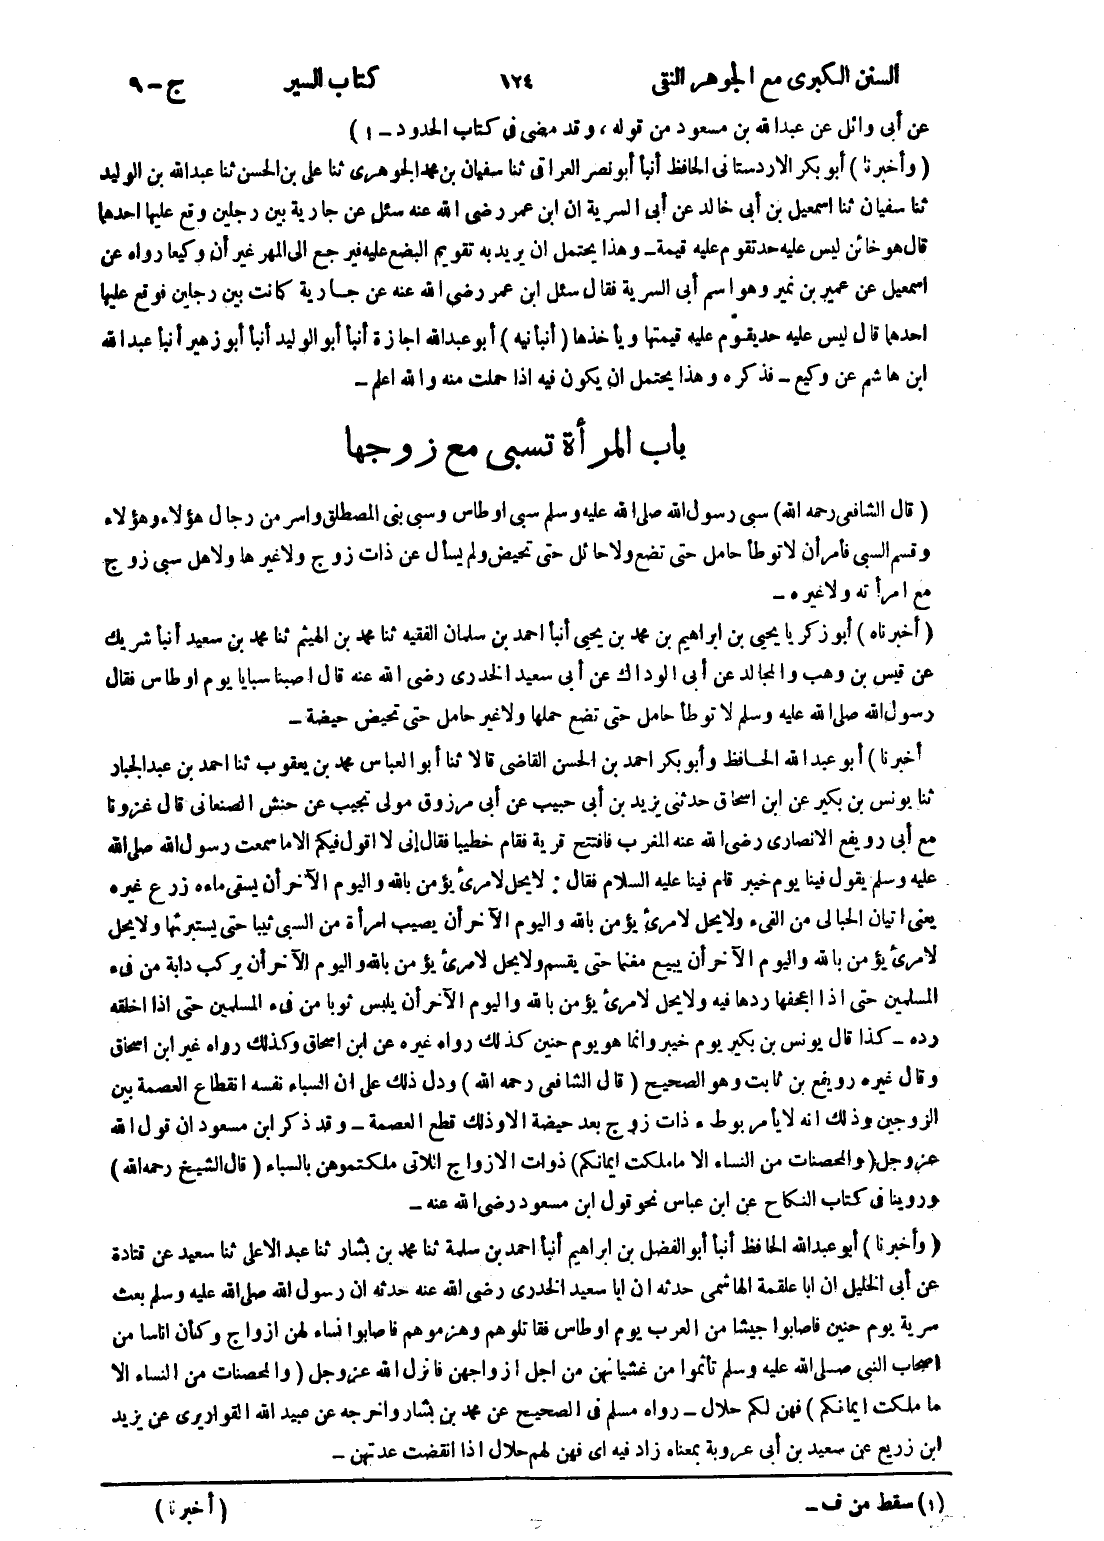 السنن الكبرى مع الجوهر النقى ١٢٤ كتاب السير ج – ٩
عن أبى وائل عن عبدالله بن مسعود من قوله ، وقد مضى فى كتاب الحدود – ١ )
( وأخبرنا ) أبو بكر الاردستانى الحافظ أنبأ أبو نصر العراقى ثنا سفيان بن محمد الجوهرى ثنا على بن الحسن ثنا عبدالله بن الوليد
ثنا سفيان ثنا اسمعيل بن أبى خالد عن أبى السرية ان ابن عمر رضى الله عنه سئل عن جارية بين رجلين وقع عليها احدهما
قال هو خائن ليس عليه حد تقوم عليه قيمة – وهذا يحتمل ان يريد به تقويم البضع عليه فيرجع الى المهر غير أن وكيعا رواه عن
اسمعيل عن عمير بن نمير وهو اسم أبى السرية فقال سئل ابن عمر رضى الله عنه عن جارية كانت بين رجلين فوقع عليها
احدهما قال ليس عليه حد يقوّم عليه قيمتها ويأخذها ( أنبأنيه ) أبو عبدالله اجازة أنبأ أبو الوليد أنبأ أبو زهير أنبأ عبدالله
ابن هاشم عن وكيع – فذكره وهذا يحتمل ان يكون فيه اذا حملت منه والله اعلم –
باب المرأة تسبى مع زوجها
( قال الشافعى رحمه الله) سبى رسول الله صلى الله عليه وسلم سبى اوطاس وسبى بنى المصطلق واسر من رجال هؤلاء وهؤلاء
وقسم السبى فأمر أن لا توطأ حامل حتى تضع ولا حائل حتى تحيض ولم يسأل عن ذات زوج ولا غيرها ولا هل سبى زوج
مع امرأته ولا غيره –
( أخبرناه ) أبو زكريا يحيى بن ابراهيم بن محمد بن يحيى أنبأ احمد بن سلمان الفقيه ثنا محمد بن الهيثم ثنا محمد بن سعيد أنبأ شريك
عن قيس بن وهب والمجالد عن أبى الوداك عن أبى سعيد الخدرى رضى الله عنه قال اصبنا سبايا يوم اوطاس فقال
رسول الله صلى الله عليه وسلم لا توطأ حامل حتى تضع حملها ولا غير حامل حتى تحيض حيضة –
أخبرنا ) أبو عبدالله الحافظ وأبو بكر احمد بن الحسن القاضى قالا ثنا أبو العباس محمد بن يعقوب ثنا احمد بن عبدالجبار
ثنا يونس بن بكير عن ابن اسحاق حدثنى يزيد بن أبى حبيب عن أبى مرزوق مولى تجيب عن حنش الصنعانى قال غزونا
مع أبى رويفع الانصارى رضى الله عنه المغرب فافتتح قرية فقام خطيبا فقال إنى لا اقول فيكم الا ما سمعت رسول الله صلى الله
عليه وسلم يقول فينا يوم خيبر قام فينا عليه السلام فقال : لا يحل لامرئ يؤمن بالله واليوم الآخر أن يسقى ماءه زرع غيره
يعنى اتيان الحبالى من الفىء ولا يحل لامرئ يؤمن بالله واليوم الآخر أن يصيب امرأة من السبى ثيبا حتى يستبرئها ولا يحل
لامرئ يؤمن بالله واليوم الآخر أن يبيع مغنما حتى يقسم ولا يحل لامرئ يؤمن بالله واليوم الآخر أن يركب دابة من فىء
المسلمين حتى اذا اعجفها ردها فيه ولا يحل لامرئ يؤمن بالله واليوم الآخر أن يلبس ثوبا من فىء المسلمين حتى اذا اخلقه
رده – كذا قال يونس بن بكير يوم خيبر وانما هو يوم حنين كذلك رواه غيره عن ابن اسحاق وكذلك رواه غير ابن اسحاق
وقال غيره رويفع بن ثابت وهو الصحيح ( قال الشافعى رحمه الله ) ودل ذلك على ان السباء نفسه انقطاع العصمة بين
الزوجين وذلك انه لا يأمر بوطء ذات زوج بعد حيضة الا وذلك قطع العصمة – وقد ذكر ابن مسعود ان قول الله
عز وجل ( والمحصنات من النساء الا ما ملكت ايمانكم) ذوات الازواج اللاتى ملكتموهن بالسباء ( قال الشيخ رحمه الله )
وروينا فى كتاب النكاح عن ابن عباس نحو قول ابن مسعود رضى الله عنه –
( وأخبرنا ) أبو عبدالله الحافظ أنبأ أبو الفضل بن ابراهيم أنبأ احمد بن سلمة ثنا محمد بن بشار ثنا عبد الاعلى ثنا سعيد عن قتادة
عن أبى الخليل ان ابا علقمة الهاشمى حدثه ان ابا سعيد الخدرى رضى الله عنه حدثه ان رسول الله صلى الله عليه وسلم بعث
سرية يوم حنين فاصابوا جيشا من العرب يوم اوطاس فقاتلوهم وهزموهم فاصابوا نساء لهن ازواج وكأن اناسا من
اصحاب النبى صلى الله عليه وسلم تأثموا من غشيانهن من اجل ازواجهن فانزل الله عز وجل ( والمحصنات من النساء الا
ما ملكت ايمانكم ) فهن لكم حلال – رواه مسلم فى الصحيح عن محمد بن بشار واخرجه عن عبيد الله القواريرى عن يزيد
ابن زريع عن سعيد بن أبى عروبة بمعناه زاد فيه اى فهن لهم حلال اذا انقضت عدتهن –
(١) سقط من ف – ( أخبرنا )